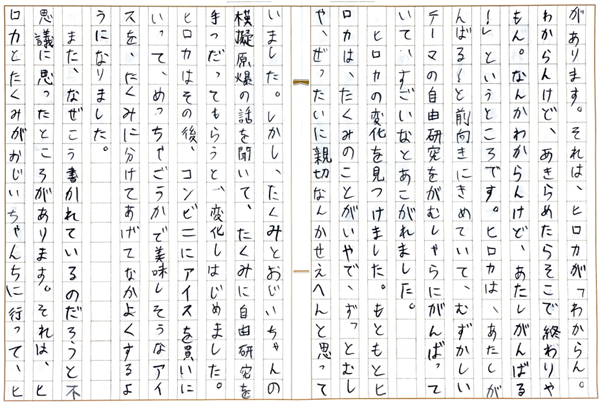 があります。それは、ヒロカが「わからん。
わからんけど、あきらめたらそこで終わりや
もん。なんかわからんけど、あたしがんばる
！」というところです。ヒロカは、あたしが
んばる！と前向きにきめていて、むずかしい
テーマの自由研究をがむしゃらにがんばって
いて、すごいなとあこがれました。
ヒロカの変化を見つけました。もともとヒ
ロカは、たくみのことがいやで、ずっとむし
や、ぜったいに親切なんかせえへんと思って
いました。しかし、たくみとおじいちゃんの
模擬原爆の話を聞いて、たくみに自由研究を
手つだってもらうと、変化しはじめました。
ヒロカはその後、コンビニにアイスを買いに
いって、めっちゃごうかで美味しそうなアイ
スを、たくみに分けてあげてなかよくするよ
うになりました。
また、なぜこう書かれているのだろうと不
思議に思ったところがあります。それは、ヒ
ロカとたくみがおじいちゃんちに行って、ヒ